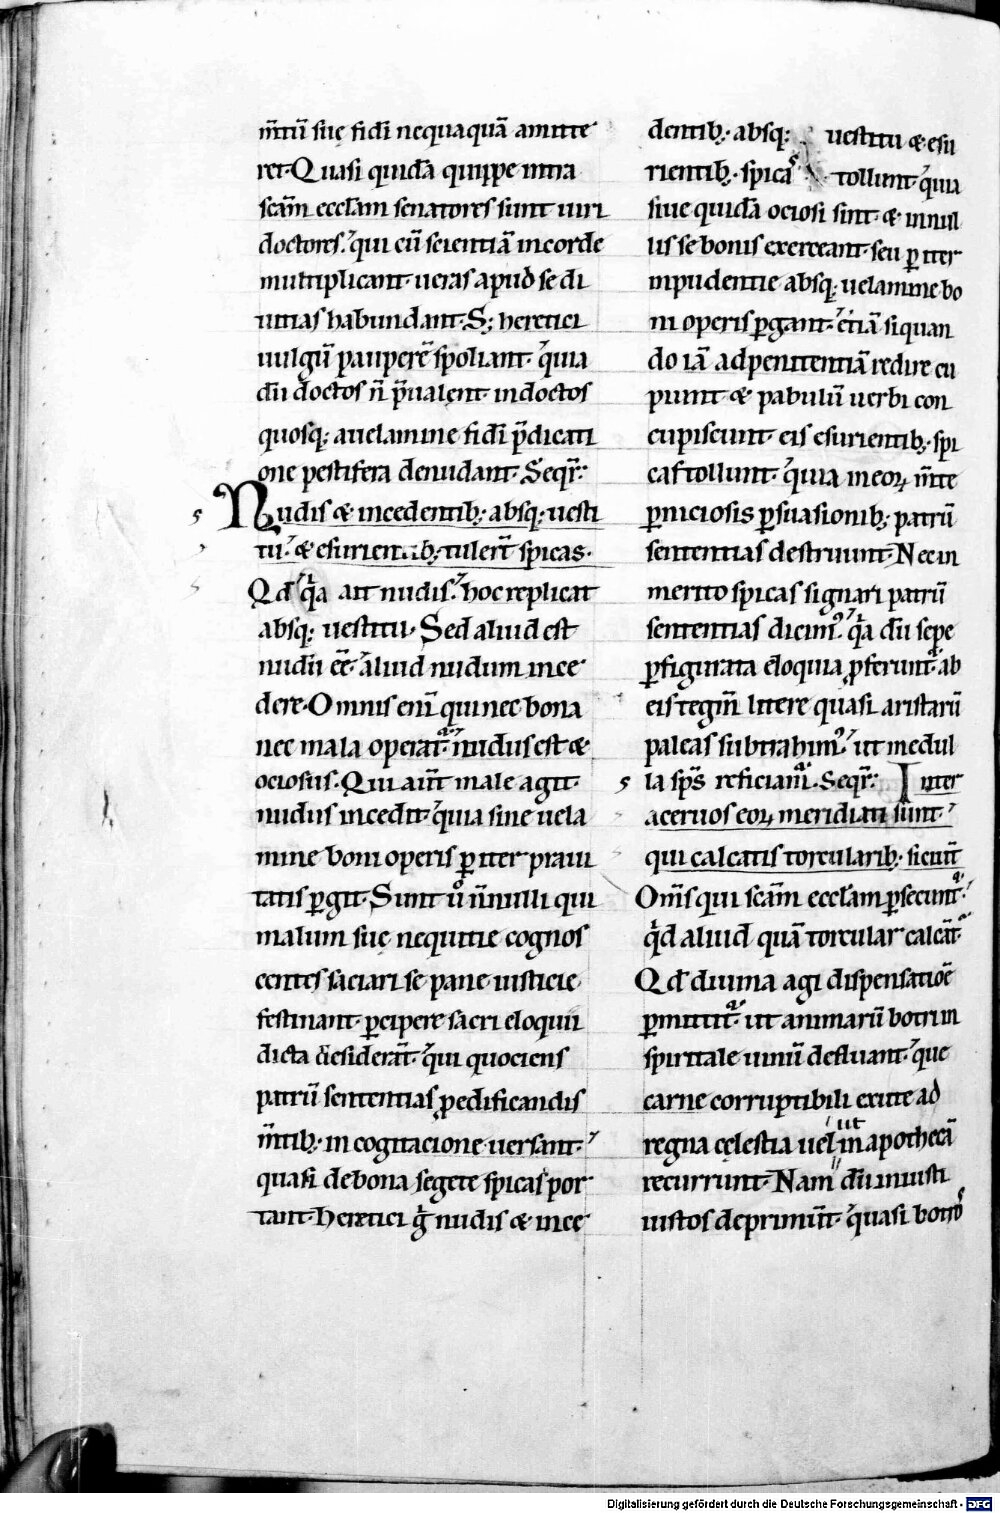 m̅tū sue fidē nequaquā amitte
ret. Quasi quidā quippe intra
scām eccłam senatores sunt uiri
doctores. qui cū scientiā in corde
multiplicant. ueras apud se di
uitias habundant. S; heretici
uulgū pauperē spoliant. quia
dū doctos n̄ p̄ualent. indoctos
quosq; a uelamine fidei p̄dicati
one pestifera denudant. Seqr̄.
Nudis & incedentib; absq; uesti
tu. & esurientib; tulert̄ spicas.
Qđ q̇a ait nudis. hoc replicat
absq; uestitu. Sed aliud est
nudū eē. aliud nudum ince
dere. Omnis enī qui nec bona
nec mala operat̄. nudus est &
ociosus. Qui aut̄ male agit.
nudus incedit. quia sine uela
mine boni operis p̱ iter praui
tatis p̱git. Sunt u̇ n̄nulli qui
malum sue nequitie cognos
centes saciari se pane iusticie
festinant. p̱cipere sacri eloquii
dicta desiderat̄. qui quociens
patrū sententias p̱ edificandis
m̄tib; in cogitacione uersant.
quasi de bona segete spicas por
tant. Heretici g̊ nudis & ince
dentib; absq; uestitu & esu
rientib; spicas tollunt. quia
siue quidā ociosi sint. & in nul
lis se bonis exerceant. seu p̱ iter
inpudentie absq; uelamine bo
ni operis p̱gant. etiā si quan
do iā ad penitentiā redire cu
piunt & pabulū uerbi con
cupiscunt. eis esurientib; spi
cas tollunt. quia in eoꝝ m̄te
p̱niciosis p̱suasionib; patrū
sententias destruunt. Nec in
merito spicas signari patrū
sententias dicim᷒. q̇a dū sepe
p̱ figurata eloquia p̱ferunt̄. ab
eis tegm̄ litere quasi aristarū
paleas subtrahim᷒. ut medul
la sps̄ reficiam̄. Seqr̄. Inter
aceruos eoꝝ meridiati sunt.
qui calcatis torcularib; sicuīt
Om̄s qui scām eccłam p̱secunt̄.
q̇d aliud quā torcular calcāt.
Qđ diuina agi dispensatioē
p̱mittit̄. ut animarū botri in
spiritale uinū defluant. que
carne corruptibili exute ad
regna celestia uel ut in apothecā
recurrunt. Nam dū iniusti
iustos deprimūt. quasi botros
Digitalisierung gefördert durch die Deutsche Forschungsgemeinschaft - DFG